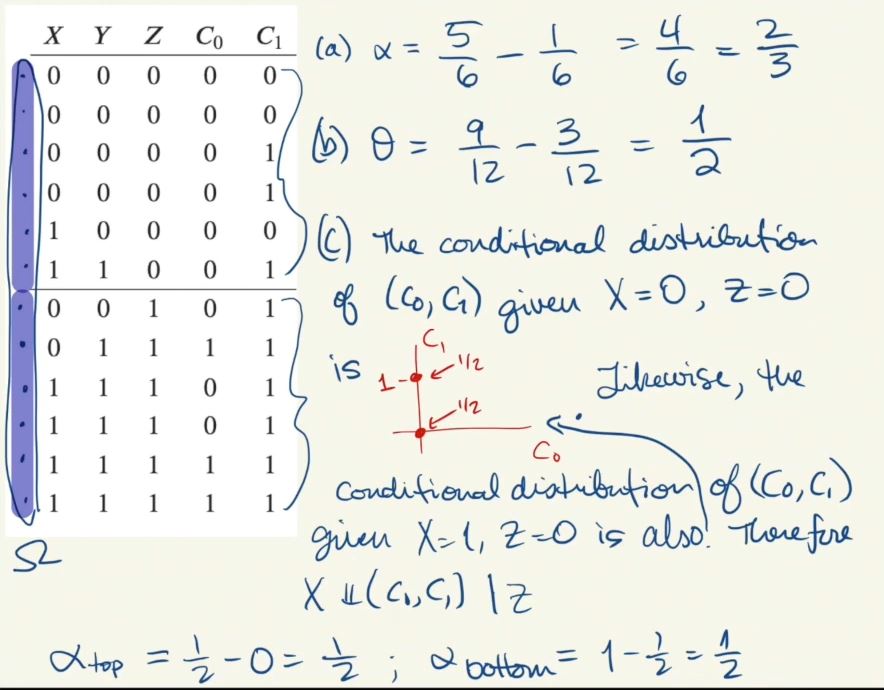 X Y Z C₀ C₁
0 0 0 0 0
0 0 0 0 0
0 0 0 0 1
0 0 0 0 1
1 0 0 0 0
1 1 0 0 1
0 0 1 0 1
0 1 1 1 1
1 1 1 0 1
1 1 1 0 1
1 1 1 1 1
1 1 1 1 1
Ω
(a) α = 5/6 - 1/6 = 4/6 = 2/3
(b) θ = 9/12 - 3/12 = 1/2
(c) The conditional distribution
of (C₀, C₁) given X=0, Z=0
is
C₁
1
1/2
1/2
C₀
Likewise, the
conditional distribution of (C₀, C₁)
given X=1, Z=0 is also. Therefore
X ⫫ (C₀, C₁) | Z
α top = 1/2 - 0 = 1/2 ; α bottom = 1 - 1/2 = 1/2